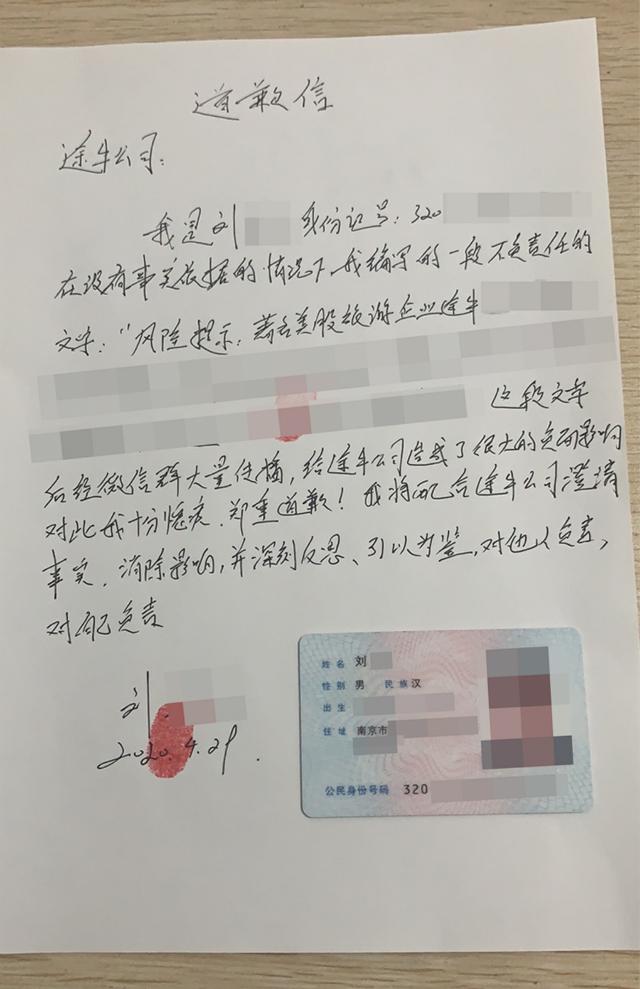 道歉信
途牛公司:
我是刘 身份证号:320
在没有事实依据的情况下,我编写的一段不负责任的
文字:"风险提示:著名美股旅游企业途牛
这段文字
后经微信群大量传播,给途牛公司造成了很大的负面影响
对此我十分愧疚、郑重道歉!我将配合途牛公司澄清
事实、消除影响,并深刻反思、引以为鉴,对他人负责,
对自己负责
刘
2020.4.29.
姓名 刘
性别 男 民族 汉
出生
住址 南京市
公民身份号码 320